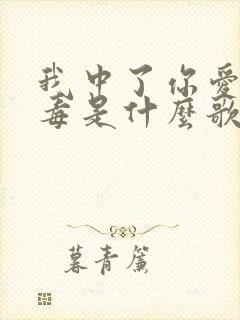 我中了你愛
毒是什麼歌
暮青簾